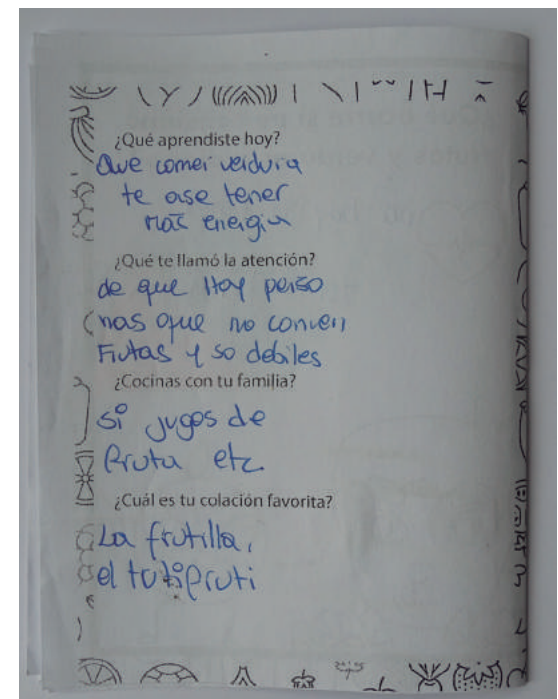 ¿Qué aprendiste hoy?
Que comer verdura
te ase tener
mas energia
¿Qué te llamó la atención?
de que Hay perso
nas que no comen
Frutas y so debiles
¿Cocinas con tu familia?
si jugos de
fruta etc.
¿Cuál es tu colación favorita?
La frutilla,
el tutifruti